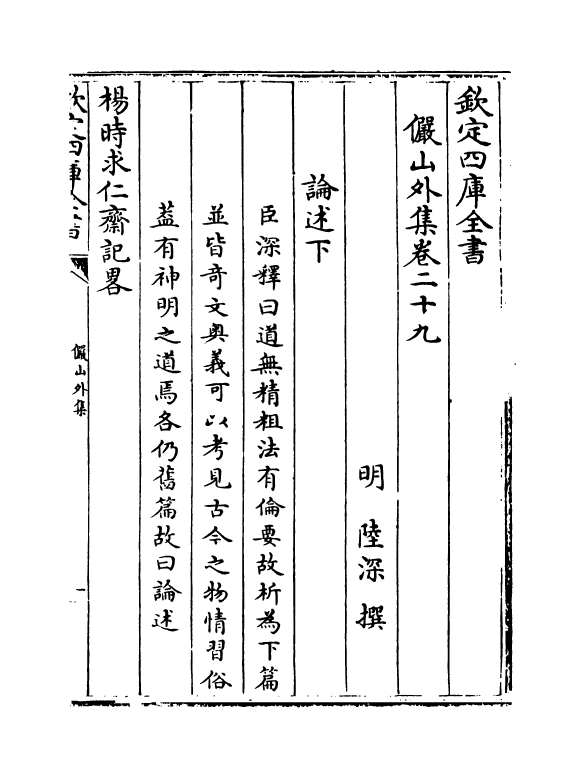 欽定四庫全書
儼山外集卷二十九
明 陸深 撰
論述下
臣深釋曰道無精粗法有倫要故析為下篇
並皆奇文奥義可以考見古今之物情習俗
葢有神明之道焉各仍舊篇故曰論述
楊時求仁齋記畧
欽定四庫全書
儼山外集
一